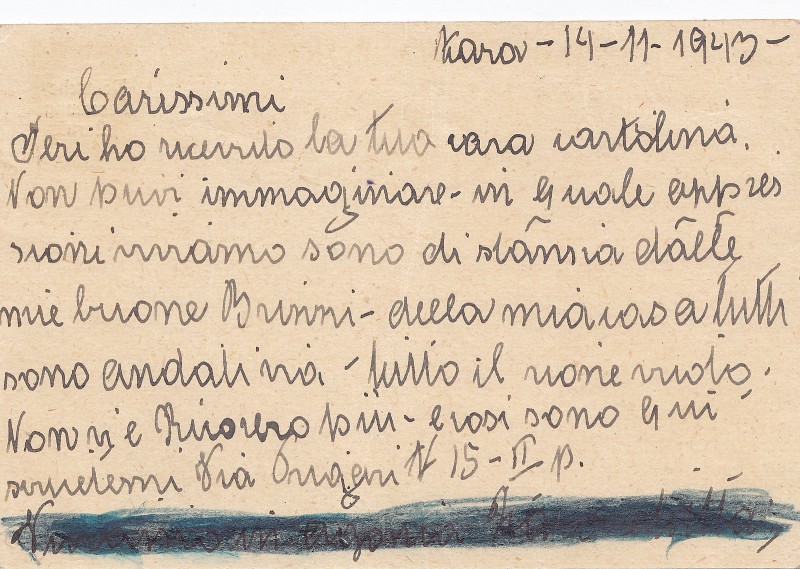 Zara - 14-11-1943 -
Carissimi
Ieri ho ricevuto la tua cara cartolina.
Non puoi immaginare - in quale appres
sioni viviamo sono di stànsia dàlle
mie buone Brunni - della mia casa tutti
sono andati via - tutto il rione vuoto.
Non vi è più - e cosi sono qui
scrivetemi Via N 15 - II p.
in